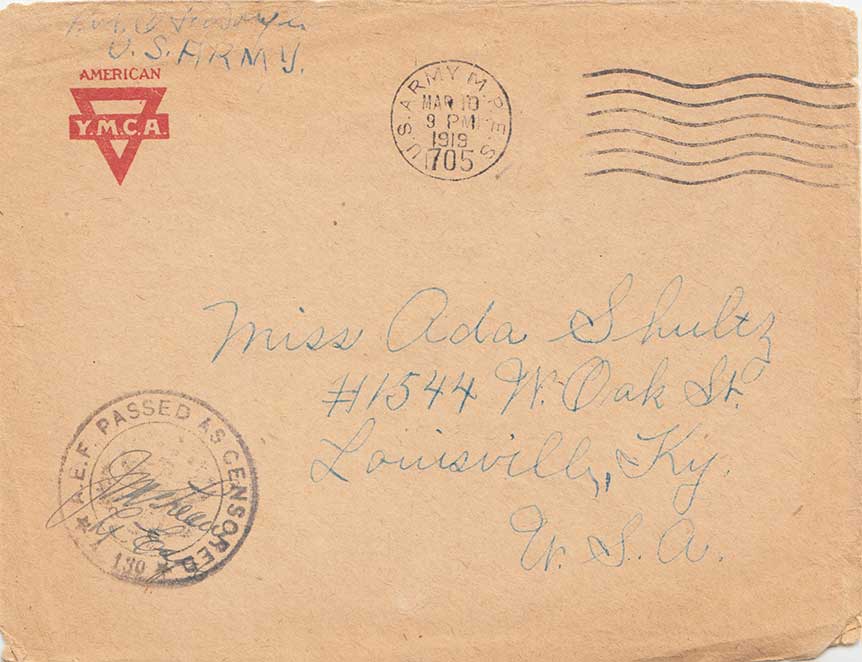 U.S. ARMY.
AMERICAN
Y.M.C.A.
U.S. ARMY M.P.E.S.
MAR 10
9 PM
1919
705
Miss Ada Shultz
#1544 W. Oak St.
Louisville, Ky.
U.S.A.
A.E.F. PASSED AS CENSORED